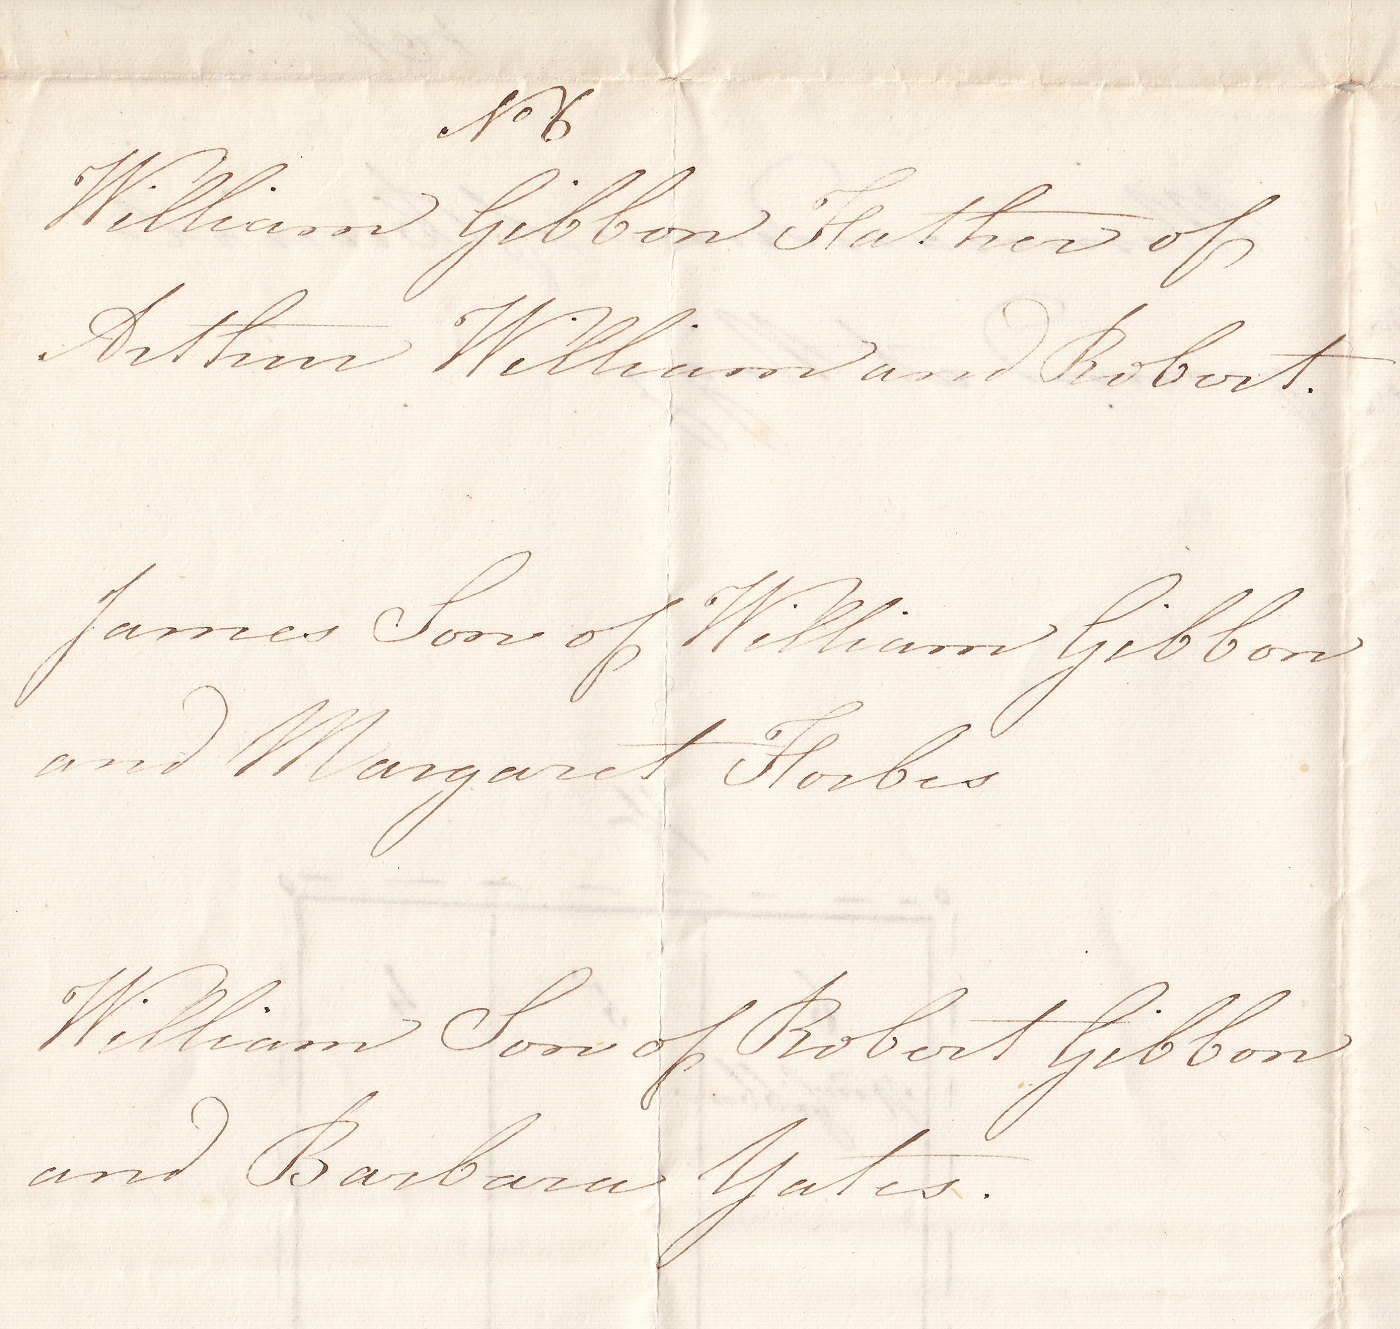 No 6
William Gibbon Father of
Arthur William and Robert.
James Son of William Gibbon
and Margaret Forbes
William Son of Robert Gibbon
and Barbara Yates.